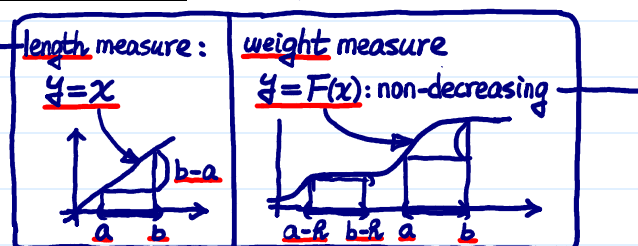 length measure:
y=x
b-a
a b
weight measure
y=F(x): non-decreasing
a-h b-h a b